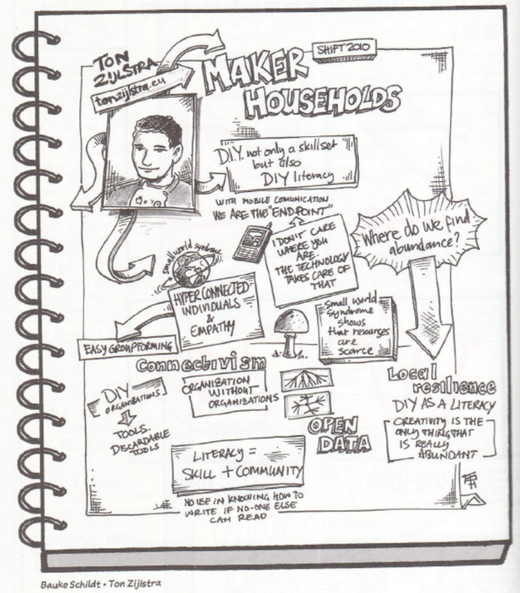 TON
ZIJLSTRA
tonzijlstra.eu
MAKER
HOUSEHOLDS
SHIFT 2010
D.I.Y. not only a skillset
but also
DIY literacy
WITH MOBILE COMUNICATION
WE ARE THE "ENDPOINT"
I DON'T CARE
WHERE YOU
ARE.
THE TECHNOLOGY
TAKES CARE OF
THAT
Where do we find
abundance?
small world syndrome
HYPERCONNECTED
INDIVIDUALS
&
EMPATHY
EASY GROUPFORMING
small world
syndrome
shows
that resourses
are
scarce
Connectivism
ORGANISATION
WITHOUT
ORGANISATIONS
DIY
ORGANISATIONS
TOOLS.
DISCARDABLE
TOOLS
OPEN
DATA
Local
resilience
DIY AS A LITERACY
CREATIVITY IS THE
ONLY THING THAT
IS REALLY
ABUNDANT
LITERACY =
SKILL + COMMUNITY
NO USE IN KNOWING HOW TO
WRITE IF NO-ONE ELSE
CAN READ
Bauke Schildt • Ton Zijlstra